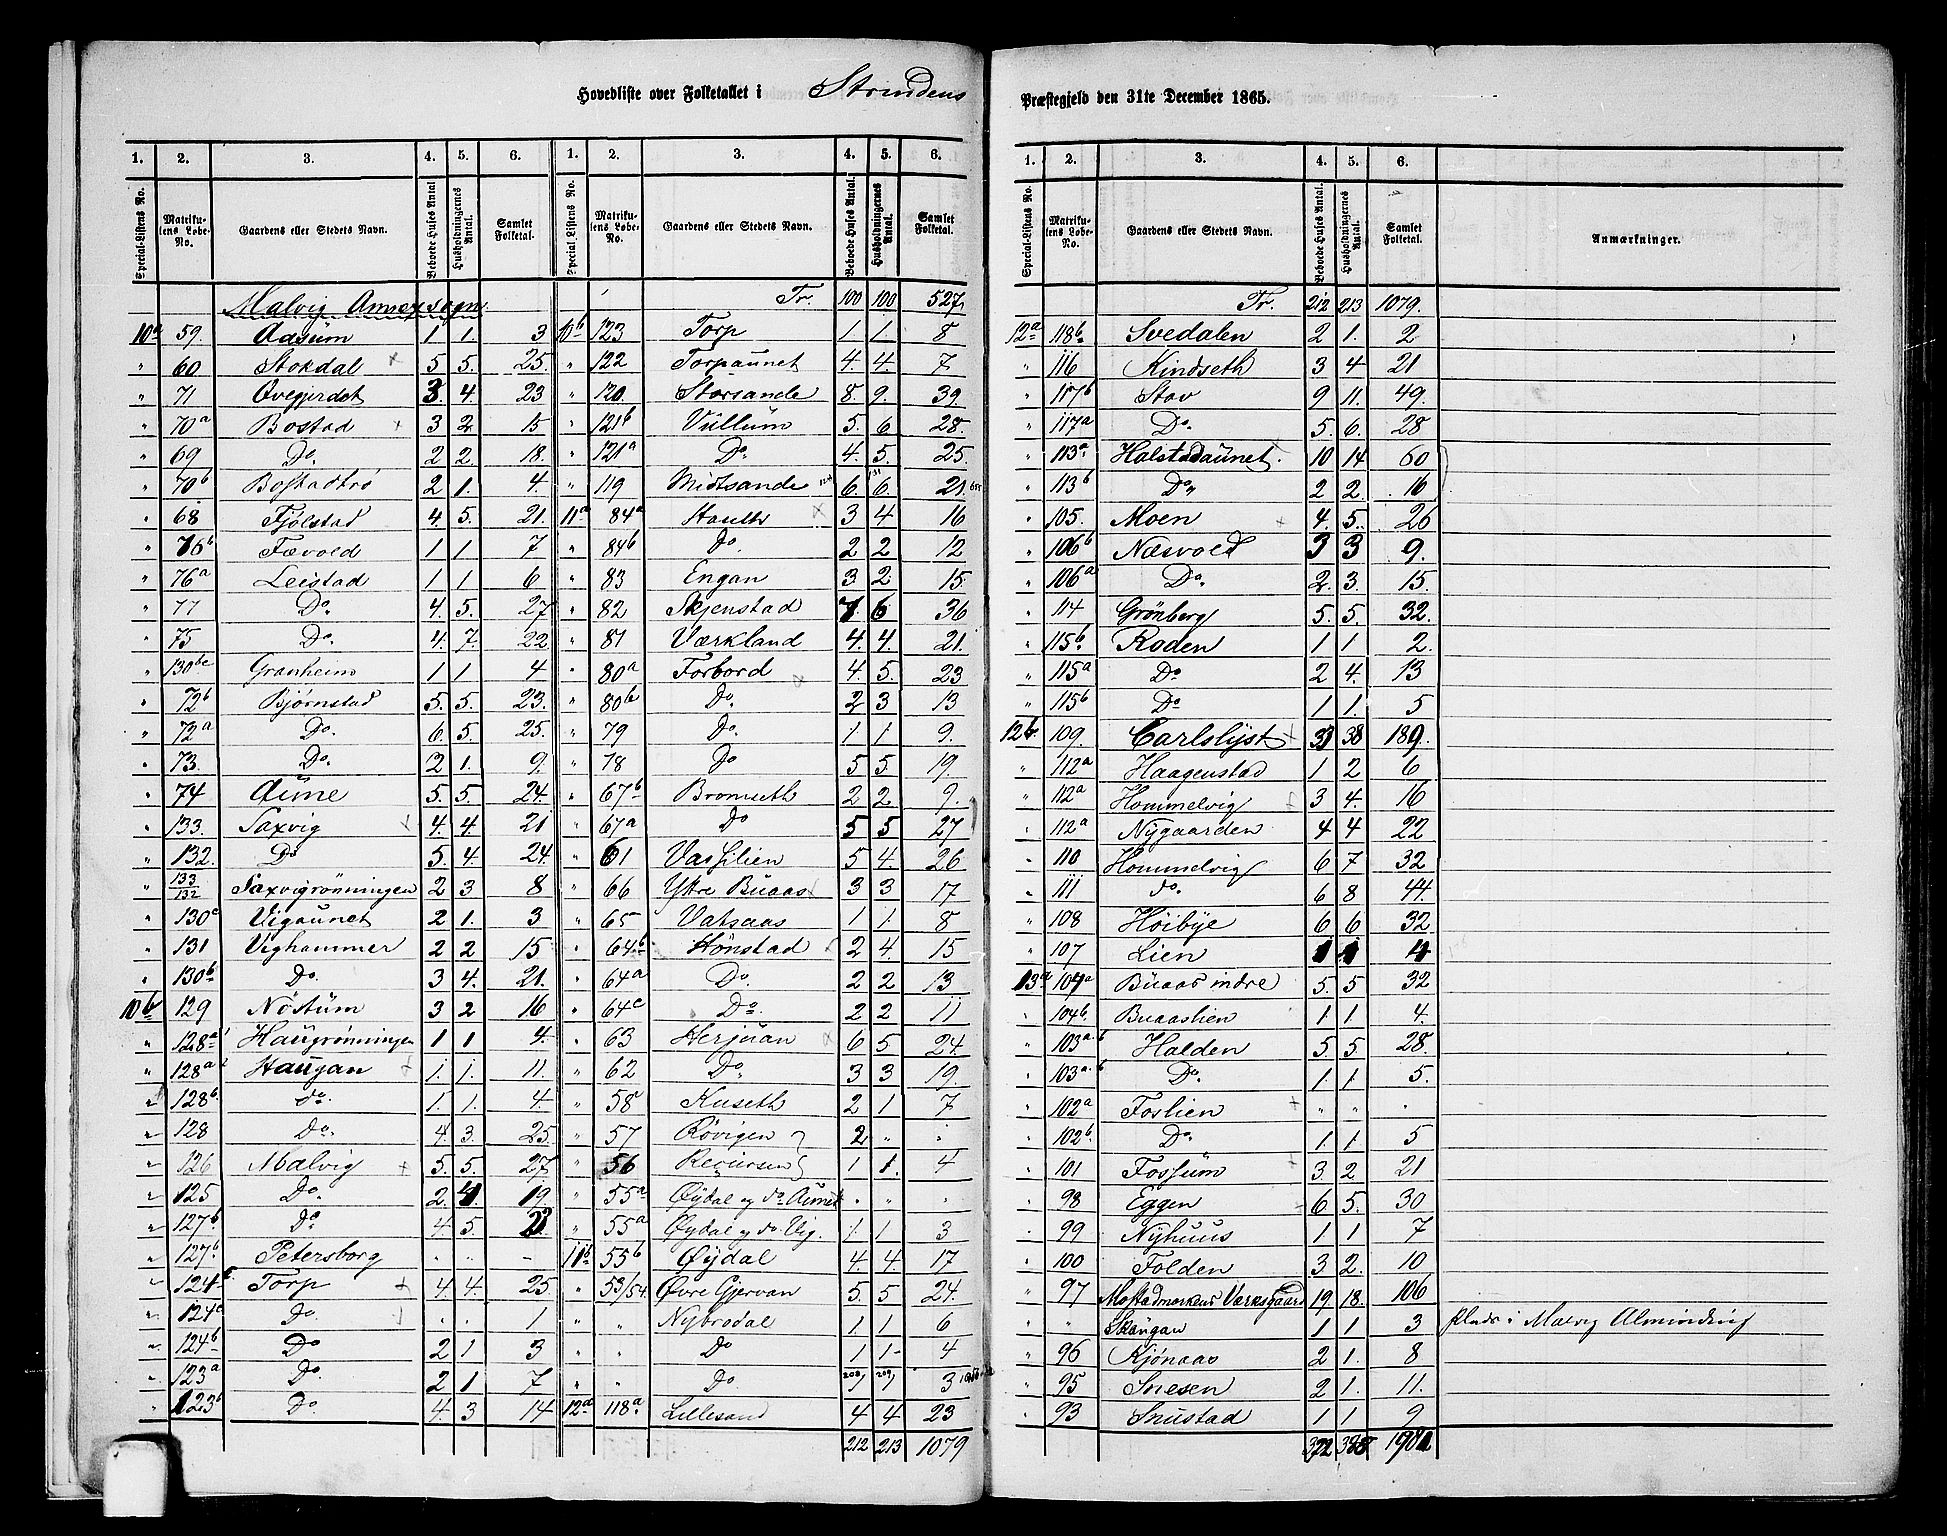 Hovedliste over Folketallet i Strindens
1. 2. 3. 4. 5. 6. 1. 2. 3. 4. 5. 6.
Special-Listens No. Matrikulens Løbe-No. Gaardens eller Stedets Navn. Beboede Huses Antal Husholdningernes Antal. Samlet Folketal. Special-Listens No. Matrikulens Løbe-No. Gaardens eller Stedets Navn. Beboede Huses Antal. Husholdningernes Antal. Samlet Folketal.
Malvig Annexsogn. Tr. 100 100 527
10a 59. Aasum 1 1. 3 10b 123 Torp 1 1. 8
" 60 Stokdal 5 5. 25. " 122 Torpaunet 4. 4. 7
" 71 Øvegjerdet 3. 4. 23 " 120. Storsande 8. 9. 39.
" 70a Bostad 3 2. 15 " 121b Vullum 5. 6 28.
" 69 Do. 2 2. 18. " 121a Do. 4. 5. 25.
" 70b Bostadtrø 2 1. 4. " 119 Midtsande 6. 6. 21.
" 68 Fjølstad 4. 5. 21. 11a 84a Hautes 3 4 16
" 76b Fævold 1 1 7 " 84b Do. 2 2 12
" 76a Leistad 1 1 6 " 83 Engan 3 2 15.
" 77 Do. 4. 5. 27 " 82 Skjenstad 7. 6 36
" 75 Do. 4. 7. 22 " 81 Værkland 4. 4. 21.
" 130bc Granheim 1 1 4 " 80a Forbord 4. 5. 23
" 72b Bjørnstad 5. 5. 23. " 80b Do. 2 3 13
" 72a Do. 6. 5. 25. " 79 Do. 1 1 9.
" 73. Do. 2 1. 9. " 78 Do 5 5. 19.
" 74 Aune 5. 5. 24. " 67b Bromseth 2 2 9.
" 133. Saxvig 4. 4. 21 " 67a Do 5 5 27
" 132. Do 5. 4. 24. " 61 Vasslien 5 4. 26
" 133/132 Saxvigrønningen 2 3 8 " 66 Ytre Buaas 3 3 17
" 130a Vigaunet 2 1. 3 " 65 Vatsaas 1 1. 8
" 131 Vighammer 2 2 15 " 64b Hønstad 2 4. 15
" 130b Do. 3 4. 21. " 64a Do. 2 2 13
10b 129 Nøstum 3 2 16 " 64c Do. 2 2 11
" 128a1 Haugrønningen 1 1 4. " 63 Herjuan 6 5 24.
" 128a2 Haugan 1. 1. 11. " 62 Do. 3 3 19.
" 128b. do. 1. 1. 4. " 58 Kuseth 2 1 7
" 128 Do. 4. 3. 25. " 57 Røvigen 2 " "
" 126 Malvig 5. 5. 27 " 56 Recursen 1 1. 4
" 125 Do. 2. 4. 19. " 55a Øydal og do. Aunet " " "
" 127b Do. 4. 5. " 55a Øydal og do. Vig. 1. 1 3
" 127b Petersborg " " - 11b 55b Øydal 4. 4 17
" 124c Torp 4. 4. 25 " 53/54. Øvre Gjervan 5. 5 24.
" 124a Do. " " 1 " " Nybrødal 1. 1 6
" 124b Do 2 1 3 " " Do 1 1 4
" 123a Do. 2 1 7 " " Do 3
" 123b Do. 4. 3 14 12a 118a Lillesand 4 4 23
212 213 1079
Præstegjeld den 31te December 1865.
1. 2. 3. 4. 5. 6.
Special-Listens No. Matrikulens Løbe-No. Gaardens eller Stedets Navn. Beboede Huses Antal. Husholdningernes Antal. Samlet Folketal. Anmærkninger.
Tr. 212 213 1079.
12a 118b Svedalen 2 1. 2
" 116 Kindseth 3 4 21
" 117b Stav 9 11. 49.
" 117a Do. 5. 6. 28
" 113a Halstadaunet. 10 14 60
" 113b Do. 2 2. 16
" 105. Moen 4. 5. 26
" 106b Næsvold 3 3 9.
" 106a Do. 2. 3. 15.
" 114 Grønberg 5. 5. 32.
" 115b Roden 1 1 2.
" 115a Do 2 4. 13
" 115b Do 1 1. 5
12b. 109. Carlslyst 38 189.
" 112a Haagenstad 1 2 6
" 112a Hommelvig 3 4. 16
" 112a Nygaarden 4 4 22
" 110 Hommelvig 6 7 32
" 111 do. 6 8 44.
" 108 Høibye 6 6 32
" 107 Lien 1 1 4
13a 104a Buaas indre 5. 5 32
" 104b. Buaaslien 1 1 4.
" 103a.b Halden 5. 5 28.
" 103a.b Do. 1. 1. 5.
" 102a Foslien " " "
" 102b. Do. 1 1 5
" 101 Fossum 3 2 21
" 98 Eggen 6 5. 30
" 99 Nyhuus 1 1 7
" 100 Folden 3 2. 10
" 97 Mostadmarkens Værksgaard 19. 18. 106
Skaugan 1 1 3 Plads i Malvig Alminding
" 96 Kjønaas 2 1. 8
" 95 Snesen 2 1. 11.
" 93 Snustad 1 1 9
322